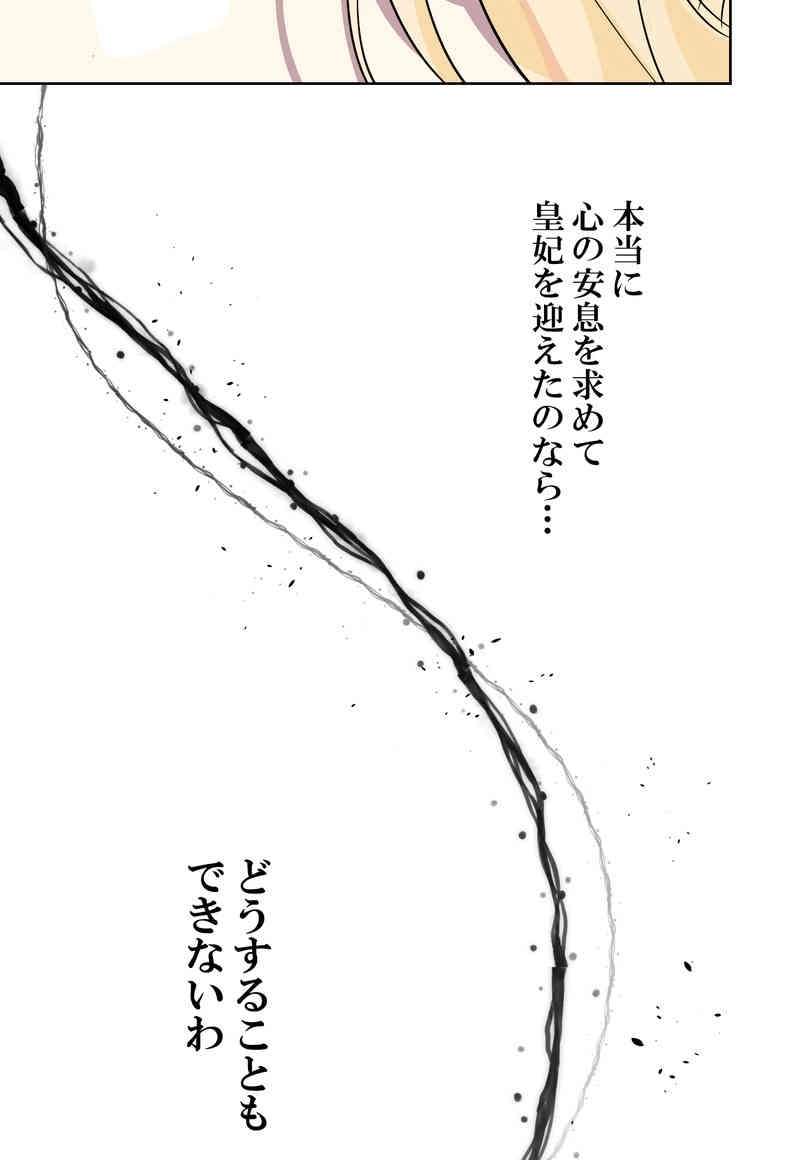 本当に
心の安息を求めて
皇妃を迎えたのなら…
どうすることも
できないわ